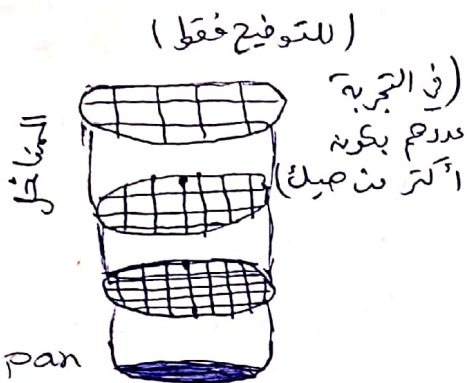 (للتوضيح فقط)
(في التجربة
عددهم بكون
أكتر من هيك)
المناخل
pan